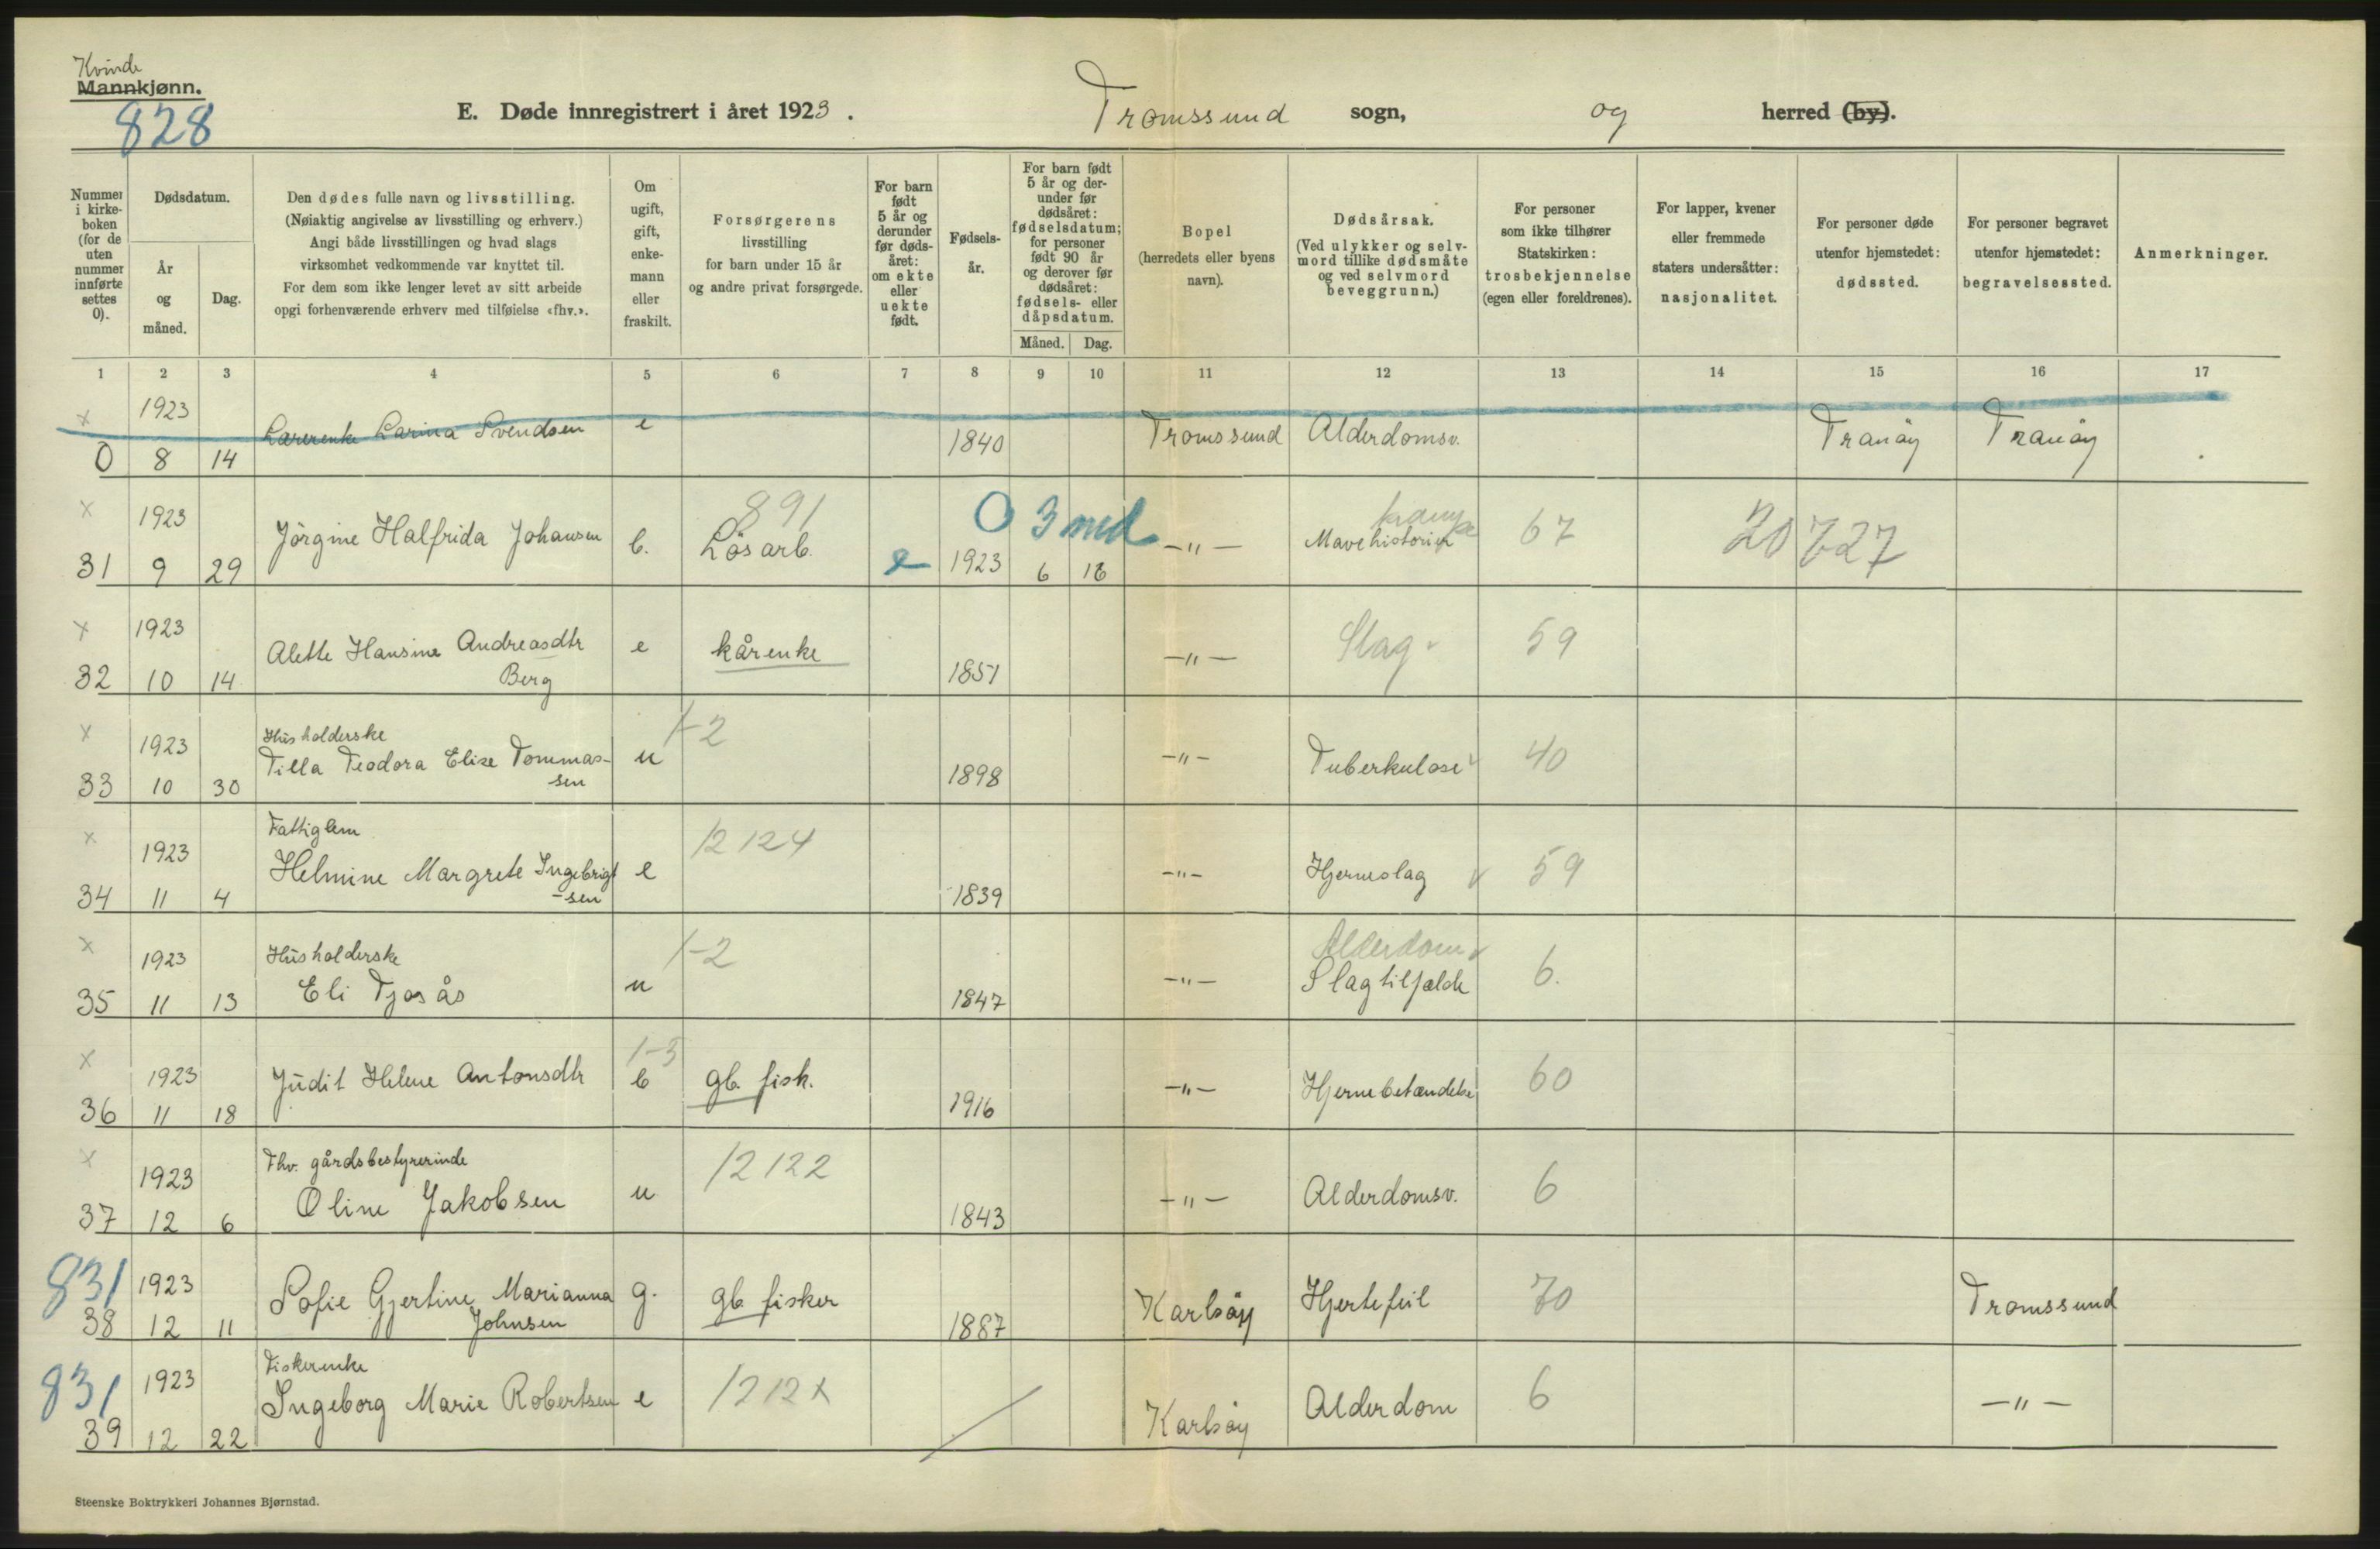 Kvinde
Mannkjønn.
828
E. Døde innregistrert i året 1923.
Tromssund sogn, og herred (by).
Nummer i kirke-boken (for de uten nummer innførte settes 0).
Dødsdatum.
År og måned.
Dag.
Den dødes fulle navn og livsstilling.
(Nøiaktig angivelse av livsstilling og erhverv.)
Angi både livsstillingen og hvad slags
virksomhet vedkommende var knyttet til.
For dem som ikke lenger levet av sitt arbeide
opgi forhenværende erhverv med tilføielse «fhv.».
Om ugift, gift, enke-mann eller fraskilt.
Forsørgerens
livsstilling
for barn under 15 år
og andre privat forsørgede.
For barn født 5 år og derunder før døds-året: om ekte eller uekte født.
Fødsels-år.
For barn født 5 år og der-under før dødsåret: fødselsdatum; for personer født 90 år og derover før dødsåret: fødsels- eller dåpsdatum.
Måned. Dag.
Bopel
(herredets eller byens navn).
Dødsårsak.
(Ved ulykker og selv-mord tillike dødsmåte og ved selvmord beveggrunn.)
For personer som ikke tilhører Statskirken: trosbekjennelse (egen eller foreldrenes).
For lapper, kvener eller fremmede staters undersåtter: nasjonalitet.
For personer døde utenfor hjemstedet: dødssted.
For personer begravet utenfor hjemstedet: begravelsessted.
Anmerkninger.
1 2 3 4 5 6 7 8 9 10 11 12 13 14 15 16 17
x 1923
0 8 14 Lærerenke Larina Svendsen e 1840 Tromssund Alderdomsv. Tranøy Tranøy
x 1923 891 0 3 md krampe
31 9 29 Jörgine Halfrida Johansen b. Lösarb. e 1923 6 18 -"- Mavehistorier 67 20 727
x 1923
32 10 14 Alette Hansine Andreasdtr Berg e kårenke 1851 -"- Slag 59
x 1923 Husholderske 1-2
33 10 30 Tilla Teodora Elise Tommassen u 1898 -"- Tuberkulose 40
x 1923 Fattiglem 12124
34 11 4 Helmine Margrete Ingebrigt-sen e 1839 -"- Hjerneslag 59
x 1923 Husholderske 1-2 Alderdom
35 11 13 Eli Tjosås u 1847 -"- Slagtilfælde 6.
x 1923 1-3
36 11 18 Judit Helene Antonsdtr b gb. fisk. 1916 -"- Hjernebetændelse 60
x 1923 Fhv. gårdsbestyrerinde 12122
37 12 6 Oline Jakobsen u 1843 -"- Alderdomsv. 6
831 1923
38 12 11 Sofie Gjertine Marianna Johnsen g. gb fisker 1887 Karlsøy Hjertefeil 70 Tromssund
831 1923 Fiskerenke
39 12 22 Ingeborg Marie Robertsen e 1212x Karlsøy Alderdom 6 -"-
Steenske Boktrykkeri Johannes Bjørnstad.